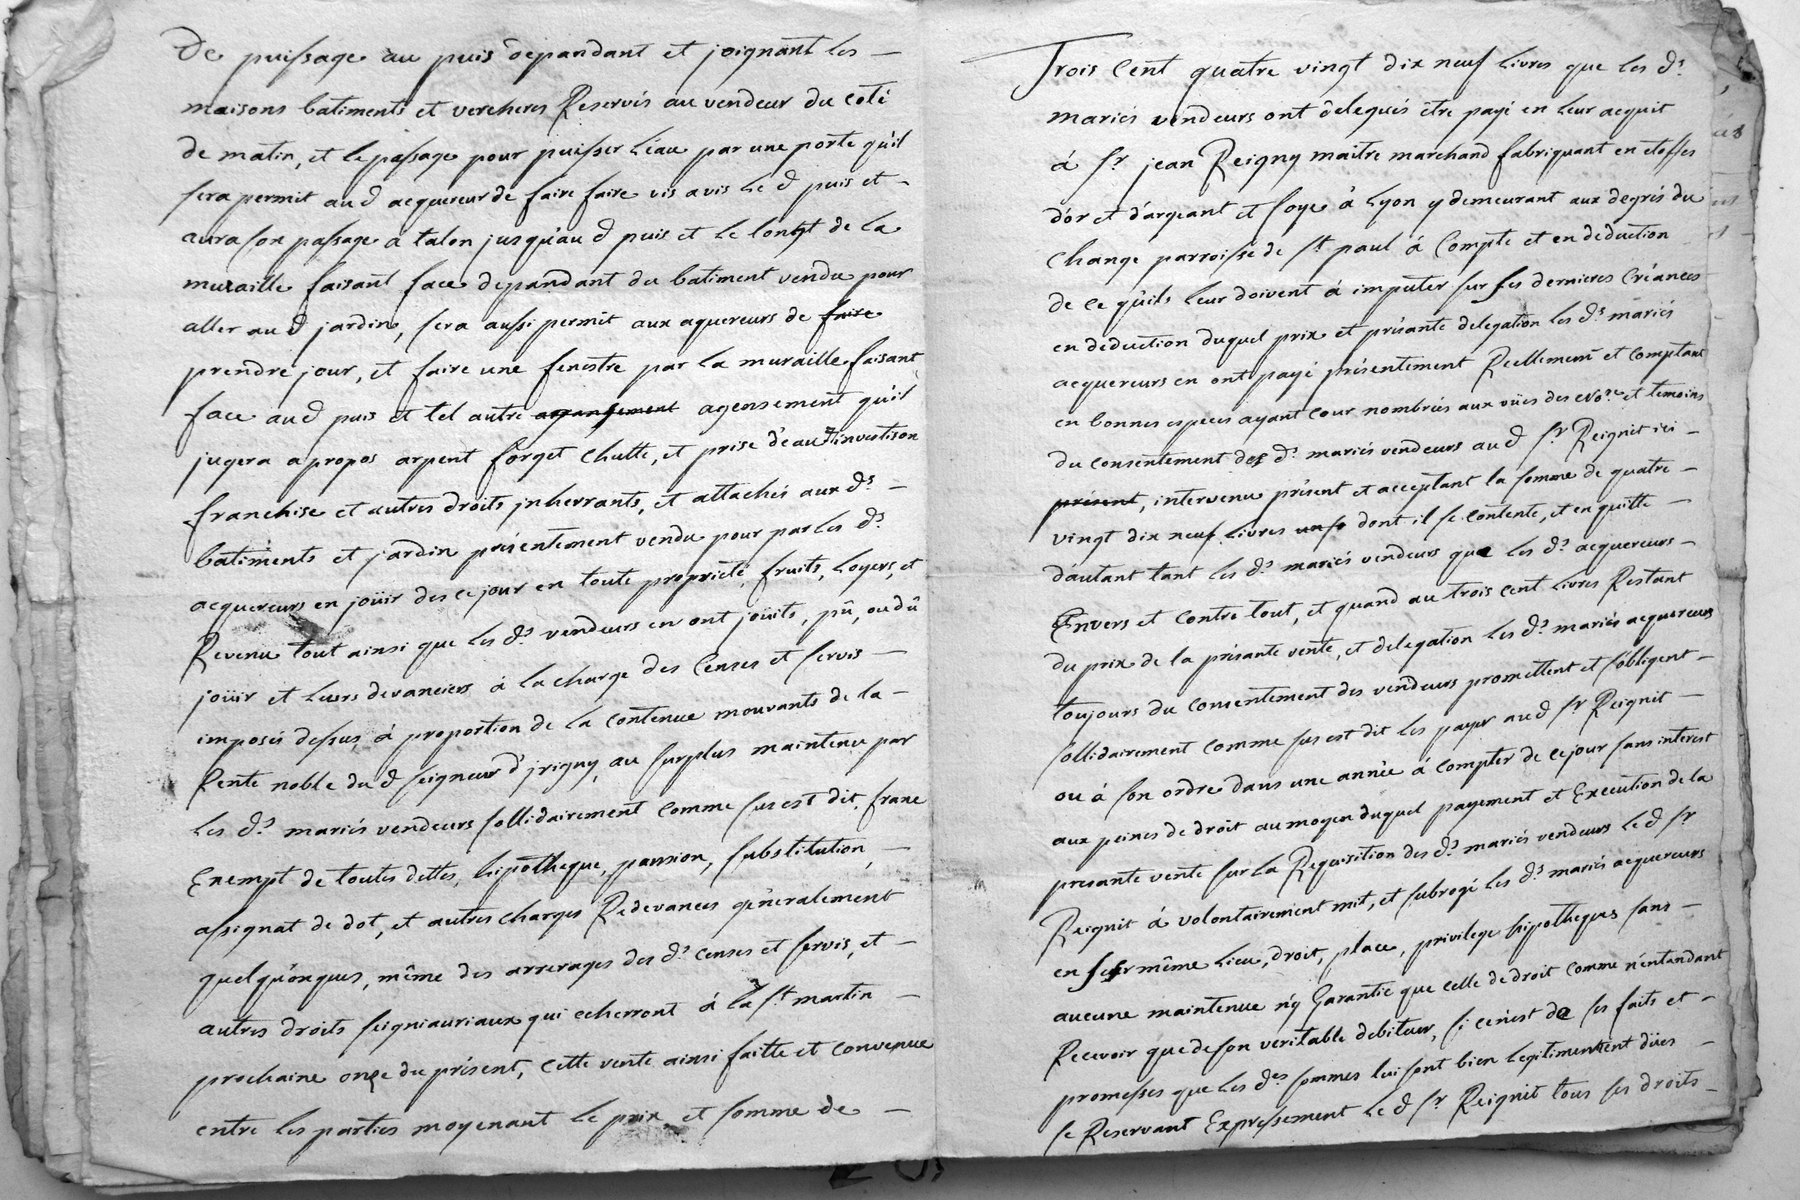 De puissage au puis dependant et joignant les –
maisons batiments et vercheres Reservés au vendeur du coté
de matin, et le passage pour puisser l'eau par une porte qu'il
sera permit au d acquereur de faire faire vis avis le d puis et –
aura son passage a talon jusqu'au d puis et le longt de la
muraille faisant face dependant du batiment vendu pour
aller au d jardin, sera aussi permit aux aquereurs de faire
prendre jour, et faire une fenestre par la muraille faisant
face au d puis et tel autre agensement qu'il
jugera apropos arpent forget chutte, et prise d'eau investison
franchise et autres droits jnherrants, et attachés aux ds –
batiments et jardin présentement vendu pour par les ds
acquereurs en joüir des ce jour en toute proprieté, fruits, loyers, et
Revenu tout ainsi que les ds vendeurs en ont joüits, pû, ou dû
joüir et leurs devanciers á la charge des Censes et servis –
imposés dessus, á proportion de la contenue mouvants de la –
Rente noble du d seigneur d'jrigny, au surplus maintenu par
les ds mariés vendeurs sollidairement comme sus est dit, franc
Exempt de toutes dettes, hipotheque, pansion, substitution, –
assignat de dot, et autres charges Redevances géneralement
quelqu'onques, même des arrerages des ds censes et servis, et –
autres droits seigniauriaux qui echerront á la St martin –
prochaine onze du présent, cette vente ainsi faitte et convenue
entre les parties moyenant le prix et somme de –
Trois Cent quatre vingt dix neuf Livres que les ds
mariés vendeurs ont delegués être payé en leur acquit
á Sr jean Reigny maitre marchand fabriquant en etoffes
d'or et d'argeant et soye á Lyon y demeurant aux degrés du
Change parroisse de St paul á Compte et en deduction
de ce qu'ils leur doivent á imputer sur ses dernieres Créances
en deduction duquel prix et présante delegation les ds mariés
acquereurs en ont payé présentement Reellement et comptant
en bonnes especes ayant cour nombrées aux vües des et temoins
du consentement des ds mariés vendeurs au d Sr Reignit ici –
présent, intervenu présent et acceptant la somme de quatre –
vingt dix neuf Livres dont il se contente, et en quitte –
d'autant tant les ds mariés vendeurs que les ds acquereurs –
Envers et contre tout, et quand au trois cent Livres Restant
du prix de la présante vente, et delegation les ds mariés acquereurs
toujours du consentement des vendeurs promettent et s'obligent –
sollidairement comme sus est dit les payer au d Sr Reignit –
ou á son ordre dans une année á compter de ce jour sans interest
aux peines de droit au moyen duquel payement et Execution de la
presante vente sur la Requisition des ds mariés vendeurs le d Sr
Reignit á volontairement mit, et subrogé les ds mariés acquereurs
en même Lieu, droit, place, privilege hipotheques sans –
aucune maintenue n'y Garantie que celle de droit comme n'entandant
Recevoir que de son veritable debiteur, si ce n'est de ses faits et –
promesses que les des sommes lui sont bien legitimement dües –
se Reservant Expressement le d Sr Reignit tous ses droits –